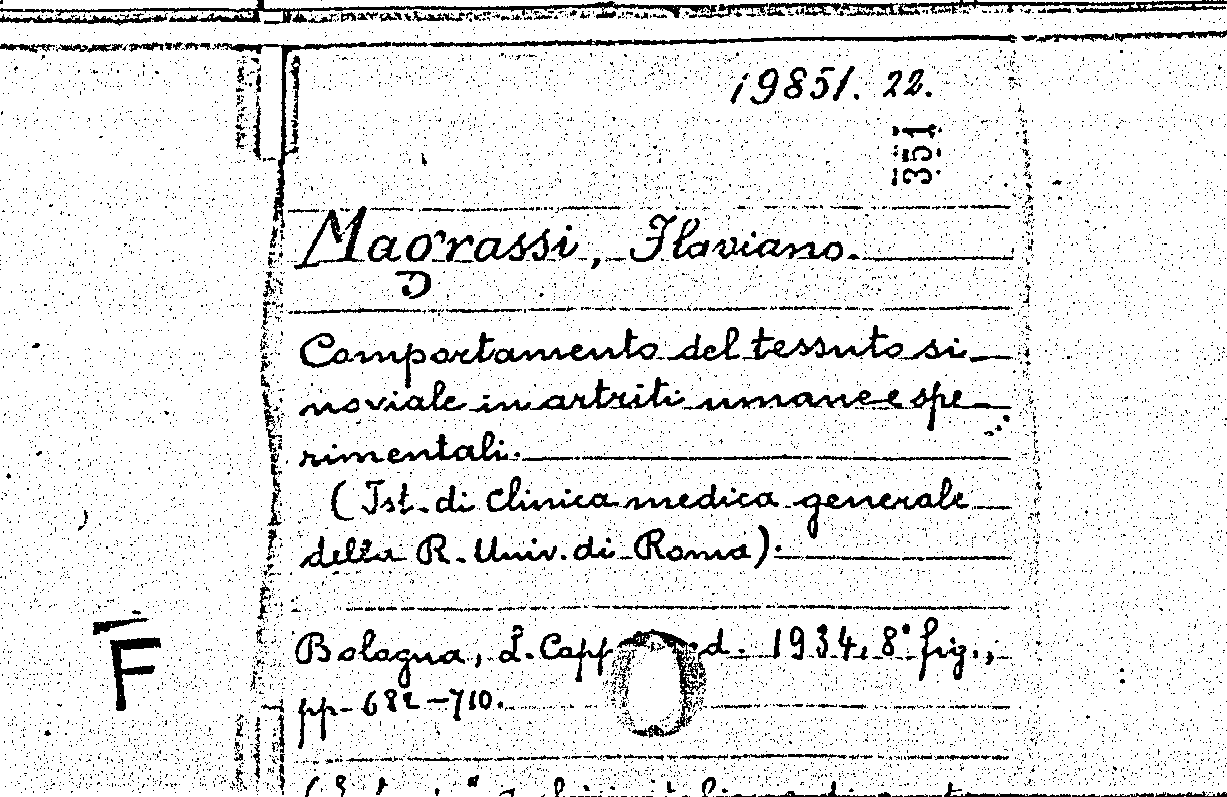 19851. 22.
351
Magrassi, Flaviano.
Comportamento del tessuto si
noviale in artriti umane e spe
rimentali.
(Ist. di Clinica medica generale
della R. Univ. di Roma).
F
Bologna, L. Capp d. 1934, 8° fig.,
pp. 682-710.